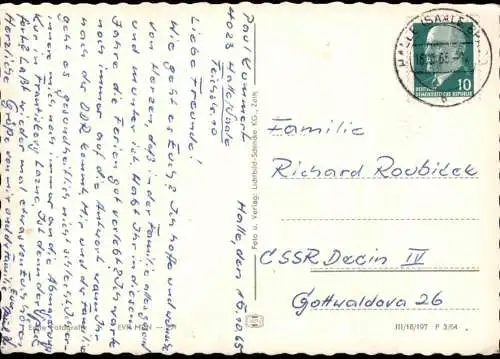 Paul Kummert
4023 Halle/Saale
Halle, den 16.10.65
Liebe Freunde!
Wie geht es Euch? Ich hoffe und wünsche
von Herzen, daß in der Familie alles gesund
und munter ist. Habt Ihr in diesem
Jahre die Ferien gut verlebt? Ich warte
noch immer auf die Antwort, wann Ihr
nach der DDR kommt. Mir und der Familie
geht es gesundheitlich nicht allzu
immer noch immer an die
Kur in Frantiskovy Lazne. Ist denn der
Laßt wieder mal etwas von Euch hören
Herzliche Grüße von mir und Familie
Foto u. Verlag: Lichtbild-Schincke KG., Zeitz
HALLE (SAALE)
DEUTSCHE
DEMOKRATISCHE REPUBLIK
10
Familie
Richard Roubiček
CSSR Decin IV
Gottwaldova 26
III/18/197 P 3/64